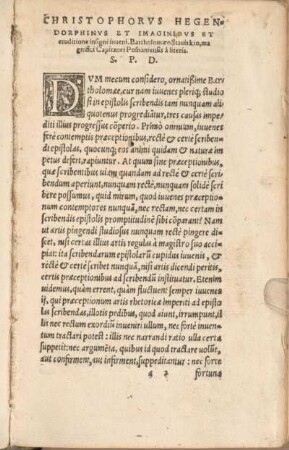 CHRISTOPHORVS HEGEN
DORPHINVS ET IMAGINIBVS ET
eruditione insigni iuveni. Bartholomæo Stauiskio, ma
gnifici Capitanei Posnaniensis à literis.
S. P. D.
DVM mecum considero, ornatissime Bar
tholomæe, cur nam iuuenes pleriq; studio
si in epistolis scribendis tam nunquam ali
quotenus progrediãtur, tres causas impe
diti illius progressus cõperio. Primò omnium, iuuenes
ferè contemptis præceptionibus, rectè & certè scriben
di epistolas, quocunq; eos animi quidam & naturæ im
petus defert, rapiuntur. At quum sine præceptionibus,
quæ scribentibus uiam quandam ad rectè & certè scri
bendum aperiunt, nunquam rectè, nunquam solidè scri
bere possumus, quid mirum, quod iuuenes præceptio
num contemptores nunquã, nec rectam, nec certam in
scribendis epistolis promptitudinẽ sibi cõparant? Nam
ut artis pingendi studiosus nunquam rectè pingere di
scet, nisi certas illius artis regulas à magistro suo acci
piat: ita scribendarum epistolarũ cupidus iuuenis, & 
rectè & certè scribet nunquã, nisi artis dicendi peritis,
certis præceptionibus ad scribendũ instituatur. Etenim
uidemus, quàm errent, quàm fluctuent semper iuuenes
ij, qui præceptionum artis rhetoricæ imperiti ad episto
las scribendas, illotis pedibus, quod aiunt, irrumpunt, il
lis nec rectum exordij inueniri ullum, nec fortè inuen
tum tractari potest: illis nec narrandi ratio ulla certa
suppetit: nec argumẽta, quibus id quod tractare uolũt,
aut confirment, aut infirment, suppeditantur: nec fortè
fortuna